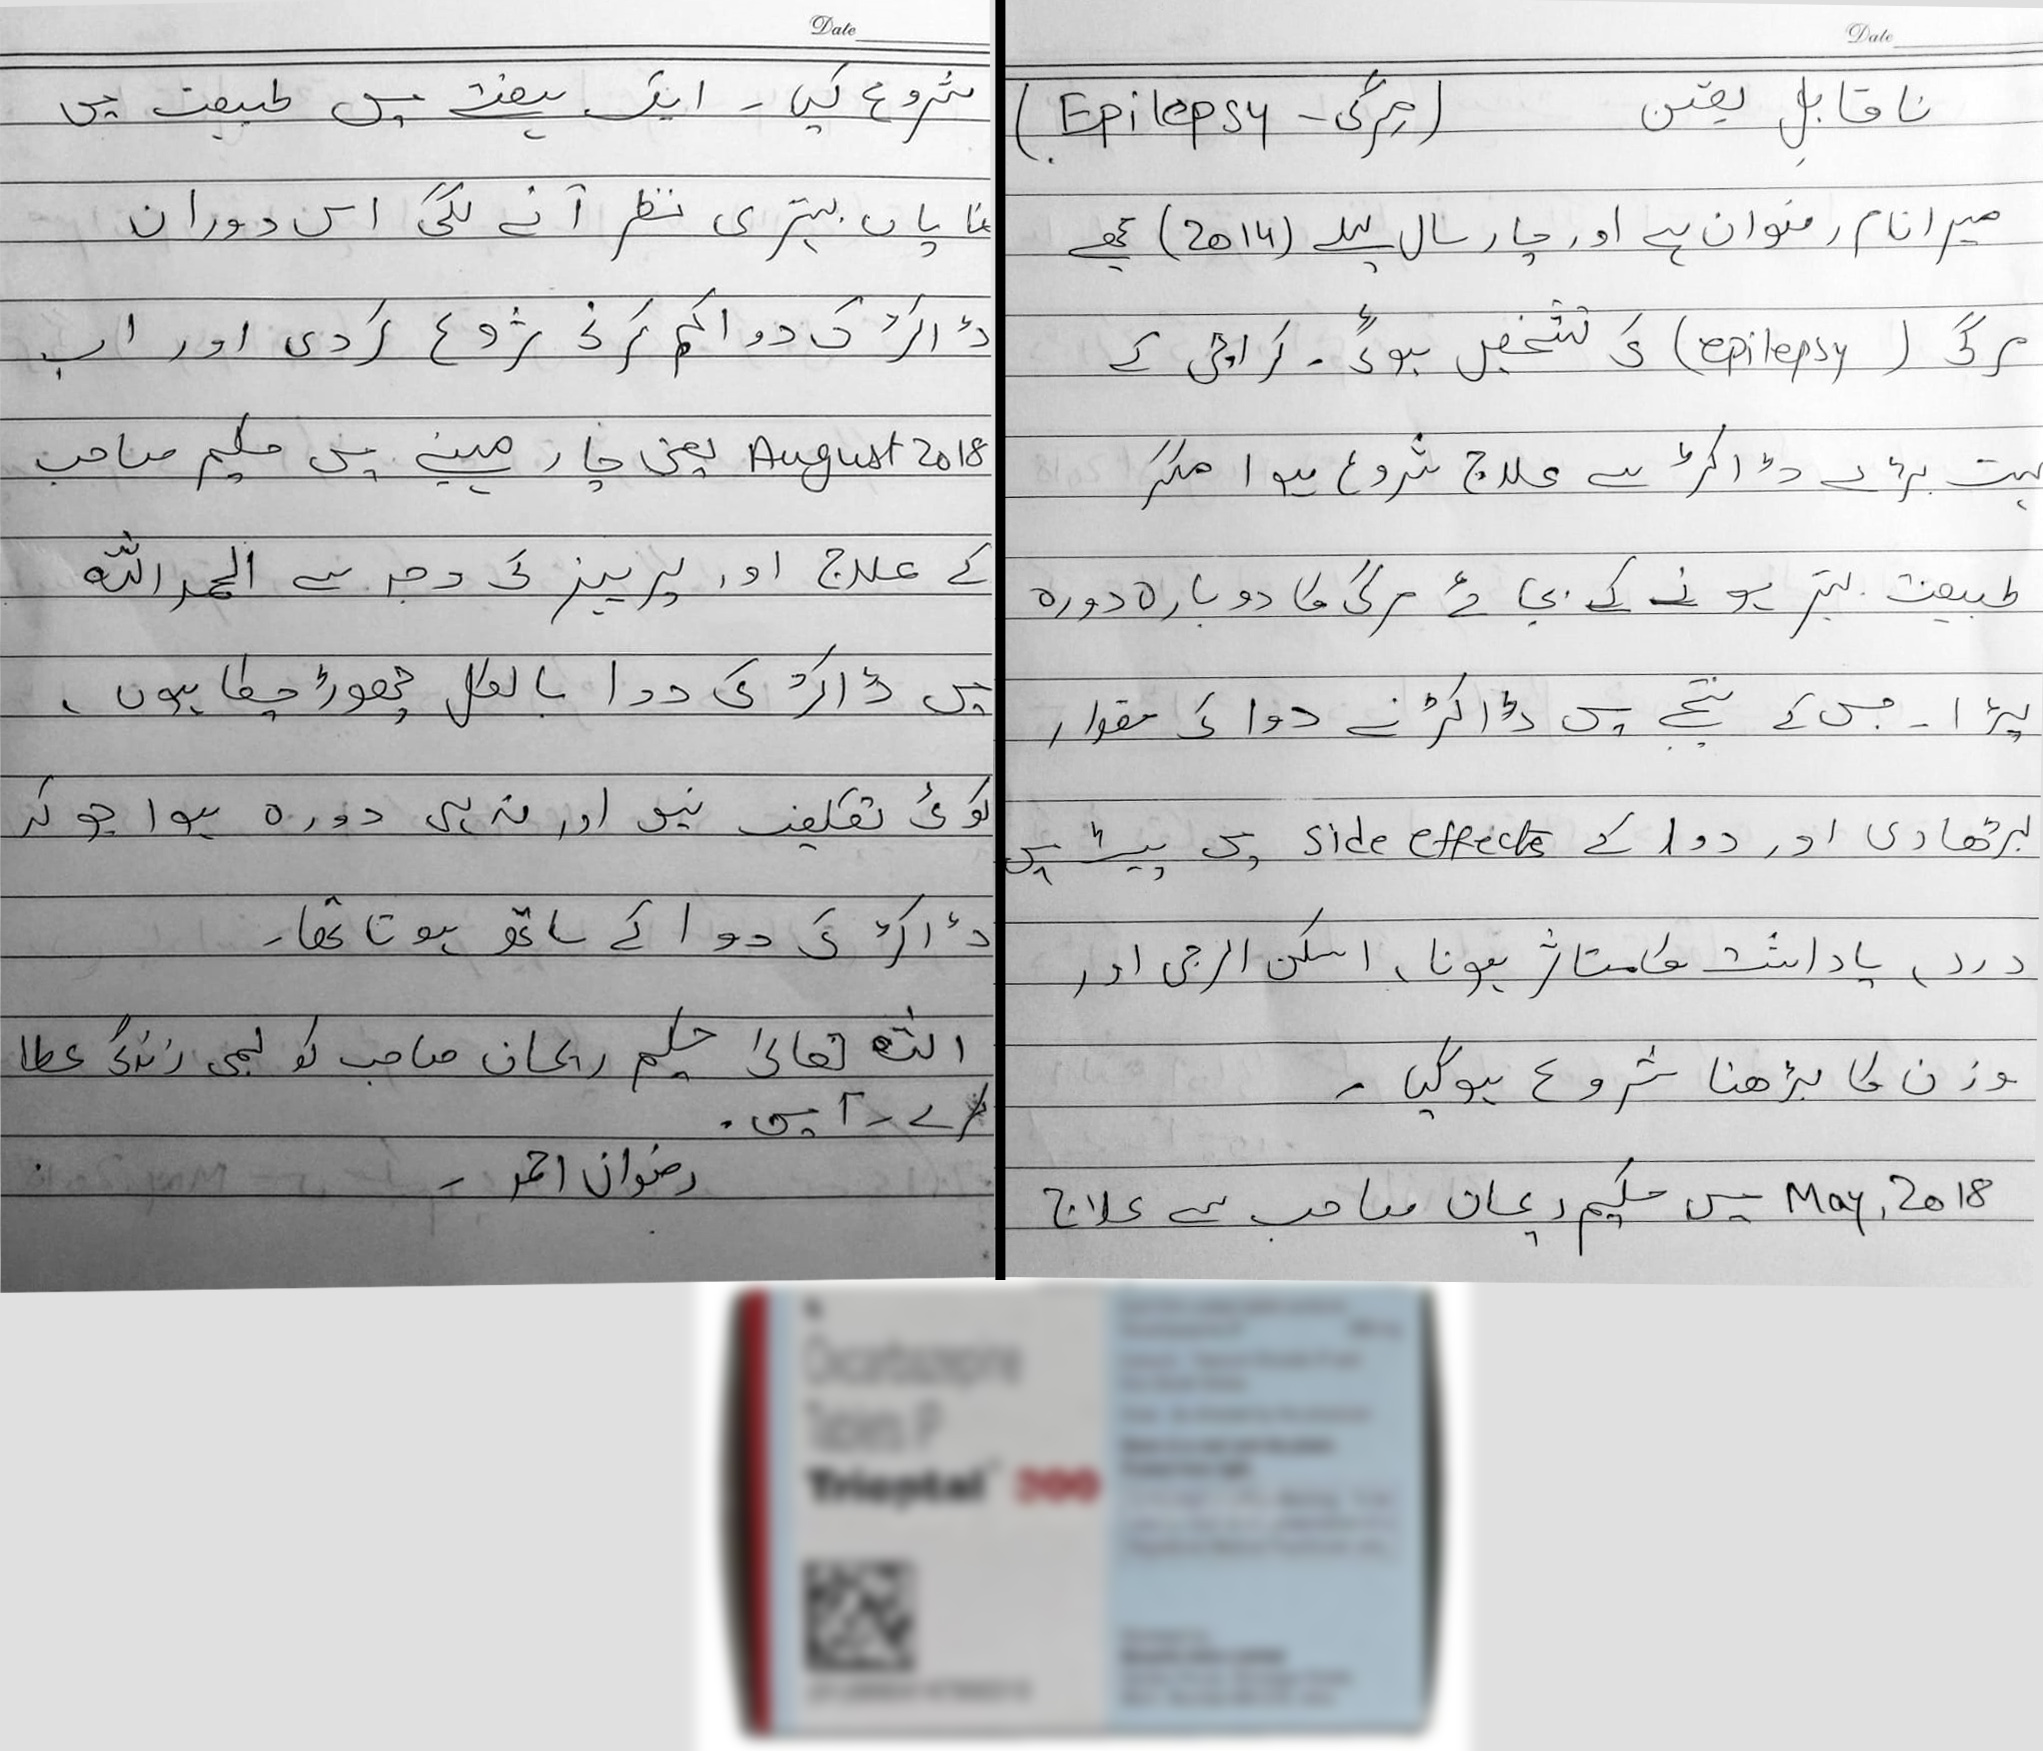 Date
ناقابلِ یقین (مِرگی - Epilepsy)
میرا نام رضوان ہے اور چار سال پہلے (2014) مجھے
مرگی (epilepsy) کی تشخیص ہوئی۔ کراچی کے
بہت بڑے ڈاکٹر سے علاج شروع ہوا مگر
طبیعت بہتر ہونے کے بجائے مرگی کا دوبارہ دورہ
پڑا۔ جس کے نتیجے میں ڈاکٹر نے دوا کی مقدار
بڑھادی اور دوا کے side effects میں پیٹ میں
درد، یاداشت کا متاثر ہونا، اسکن الرجی اور
وزن کا بڑھنا شروع ہوگیا۔
May, 2018 میں حکیم ریحان صاحب سے علاج
Date
شروع کیا۔ ایک ہفتے میں طبیعت میں
نمایاں بہتری نظر آنے لگی اس دوران
ڈاکٹر کی دوا کم کرنی شروع کردی اور اب
August 2018 یعنی چار مہینے میں حکیم صاحب
کے علاج اور پرہیز کی وجہ سے الحمداللہ
میں ڈاکٹر کی دوا بالکل چھوڑ چکا ہوں،
کوئی تکلیف نہیں اور نہ ہی دورہ ہوا جو کہ
ڈاکٹر کی دوا کے ساتھ ہوتا تھا۔
اللہ تعالیٰ حکیم ریحان صاحب کو لمبی زندگی عطا
کرے۔ آمین۔
رضوان احمد۔
Oxcarbazepine
Tablets IP
Trioptal 300